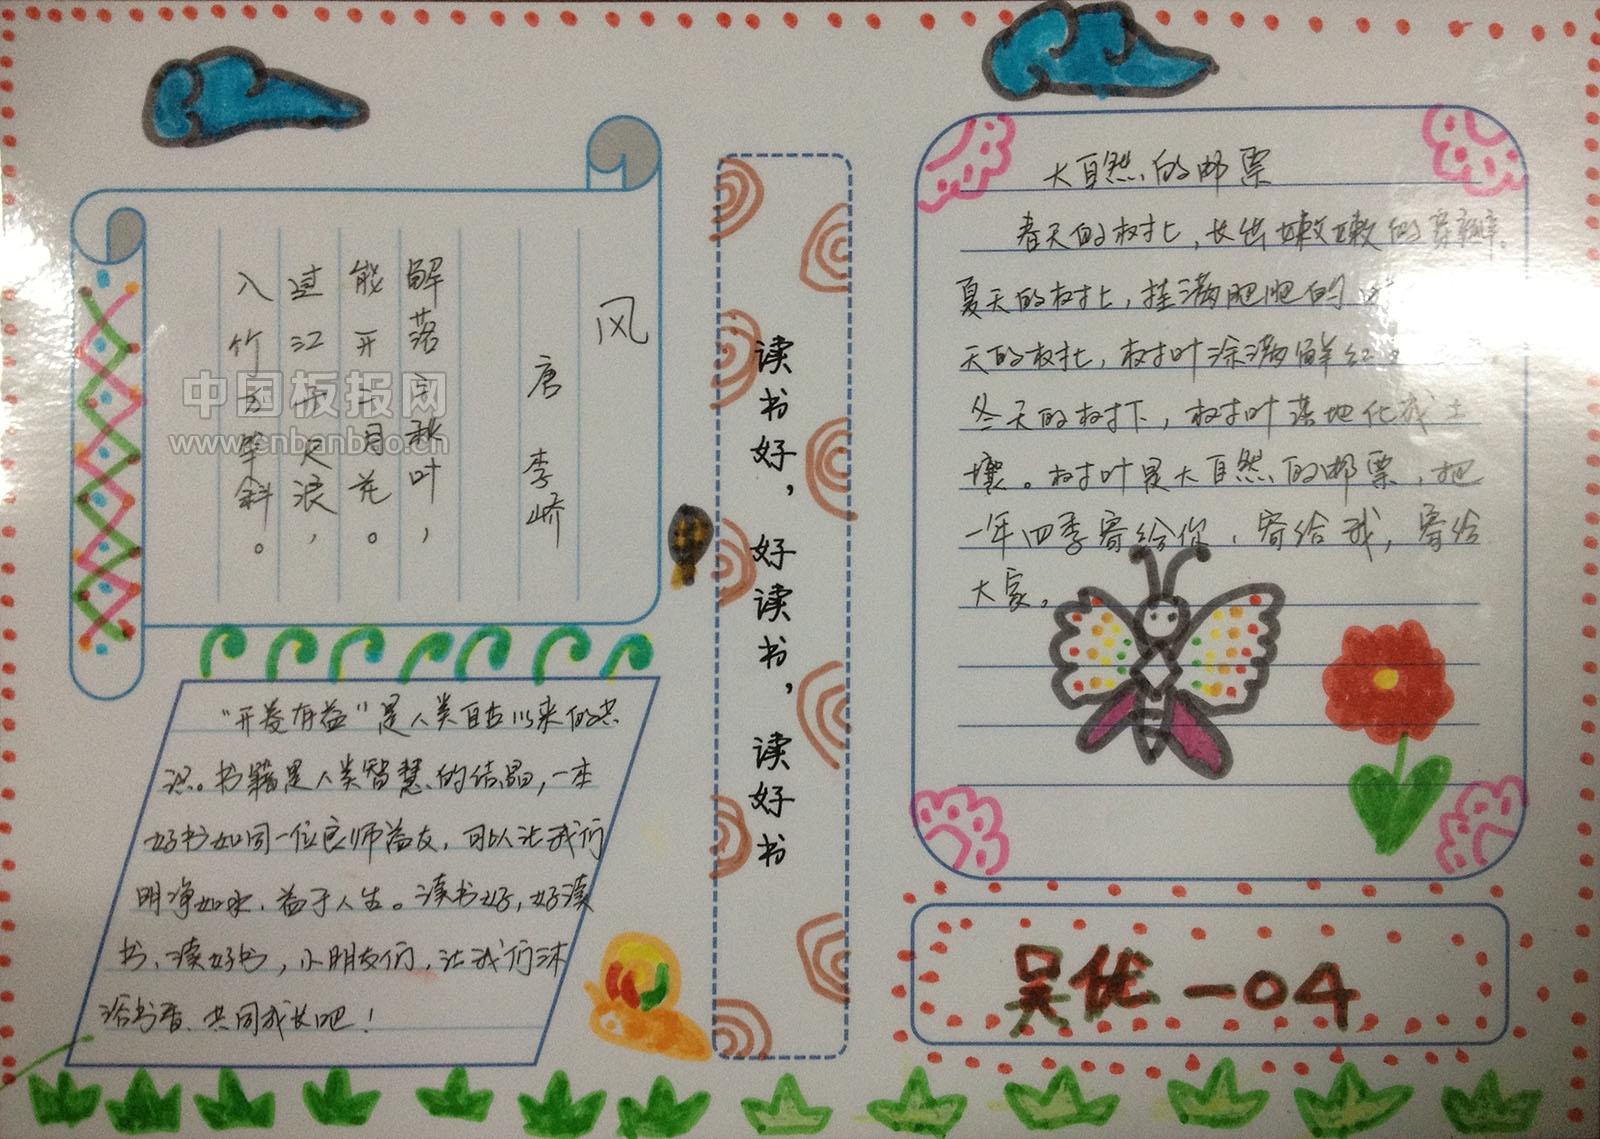 风
唐 李峤
解落三秋叶，
能开二月花。
过江千尺浪，
入竹万竿斜。
中国板报网
www.cnbanbao.cn
“开卷有益”是人类自古以来的共
识。书籍是人类智慧的结晶，一本
好书如同一位良师益友，可以让我们
明净如水、益于人生。读书好，好读
书、读好书，小朋友们，让我们沐
浴书香、共同成长吧！
读书好，好读书，读好书
大自然的邮票
春天的树上，长出嫩嫩的芽瓣，
夏天的树上，挂满肥肥的
天的树上，树叶涂满鲜红
冬天的树下，树叶落地化成土
壤。树叶是大自然的邮票，把
一年四季寄给你，寄给我，寄给
大家。
吴优 一04